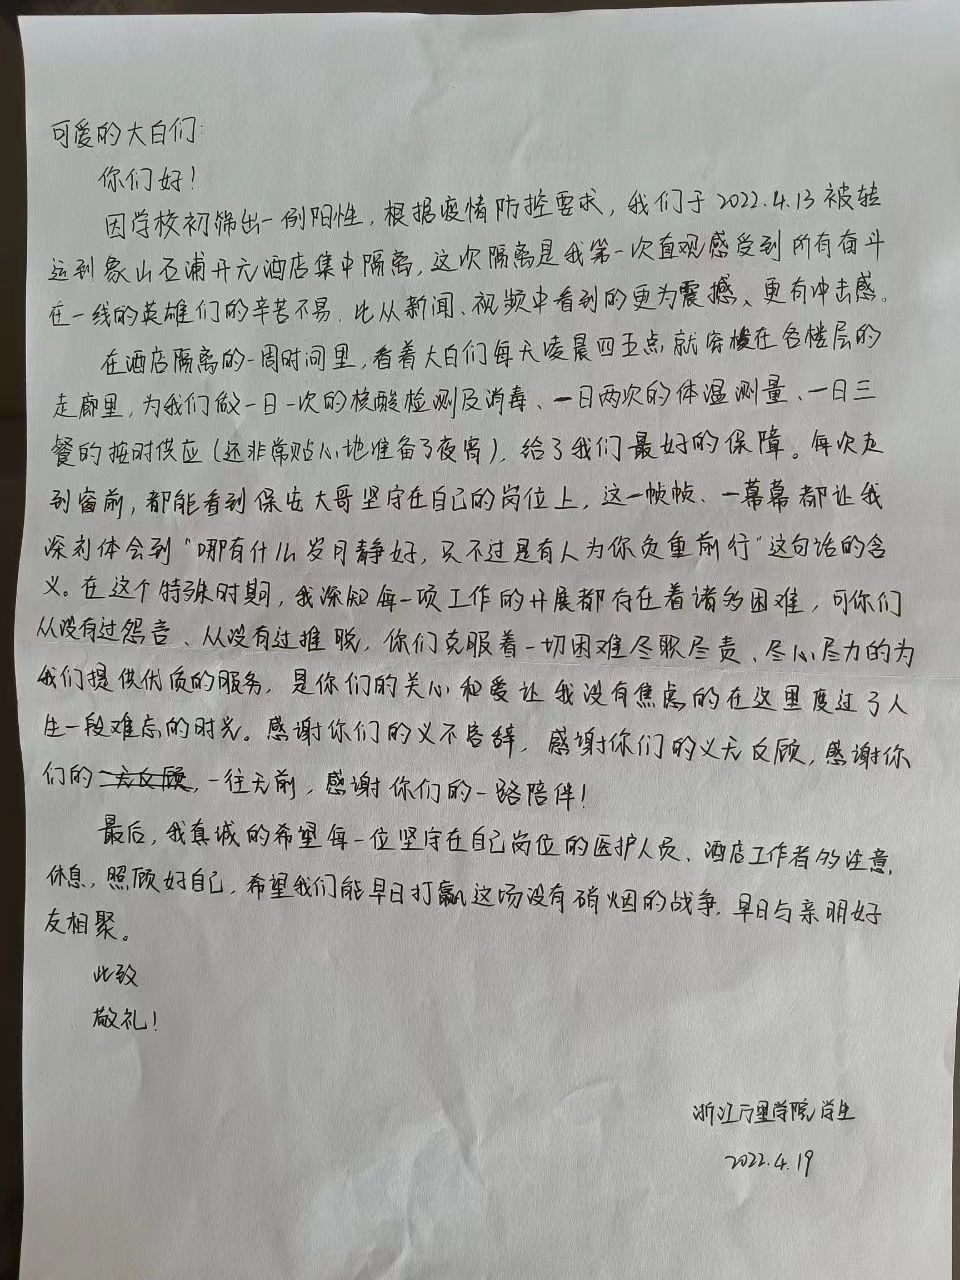 可爱的大白们:
你们好!
因学校初筛出一例阳性，根据疫情防控要求，我们于2022.4.13被转
运到象山石浦开元酒店集中隔离，这次隔离是我第一次直观感受到所有奋斗
在一线的英雄们的辛苦不易，比从新闻、视频中看到的更为震撼、更有冲击感。
在酒店隔离的一周时间里，看着大白们每天凌晨四五点就穿梭在各楼层的
走廊里，为我们做一日一次的核酸检测及消毒、一日两次的体温测量、一日三
餐的按时供应(还非常贴心地准备了夜宵)，给了我们最好的保障。每次走
到窗前，都能看到保安大哥坚守在自己的岗位上，这一帧帧、一幕幕都让我
深刻体会到"哪有什么岁月静好，只不过是有人为你负重前行"这句话的含
义。在这个特殊时期，我深知每一项工作的开展都存在着诸多困难，可你们
从没有过怨言、从没有过推脱，你们克服着一切困难尽职尽责、尽心尽力的为
我们提供优质的服务，是你们的关心和爱让我没有焦虑的在这里度过了人
生一段难忘的时光。感谢你们的义不容辞，感谢你们的义无反顾，感谢你
们的一往无前，感谢你们的一路陪伴!
最后，我真诚的希望每一位坚守在自己岗位的医护人员、酒店工作者多注意
休息，照顾好自己，希望我们能早日打赢这场没有硝烟的战争，早日与亲朋好
友相聚。
此致
敬礼!
浙江万里学院学生
2022.4.19